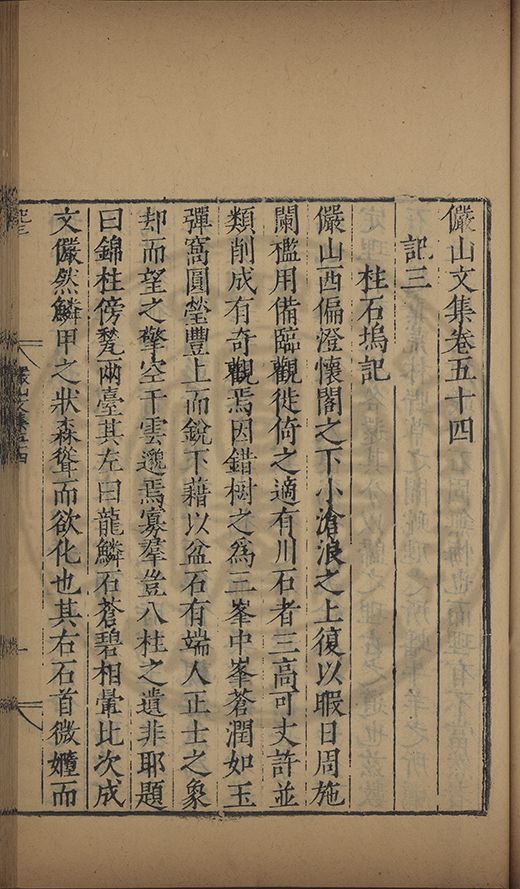 儼山文集卷五十四
記三
柱石塢記
儼山西偏澄懷閣之下小滄浪之上復以暇日周施
闌檻用備臨觀徙倚之適有川石者三高可丈許並
類削成有奇觀焉因錯樹之為三峯中峯蒼潤如玉
彈窩圓瑩豐上而銳下藉以盆石有端人正士之象
却而望之擎空干雲邈焉寡羣豈八柱之遺非耶題
曰錦柱傍甃兩臺其左曰龍鱗石蒼碧相暈比次成
文儼然鱗甲之狀森聳而欲化也其右石首微
而